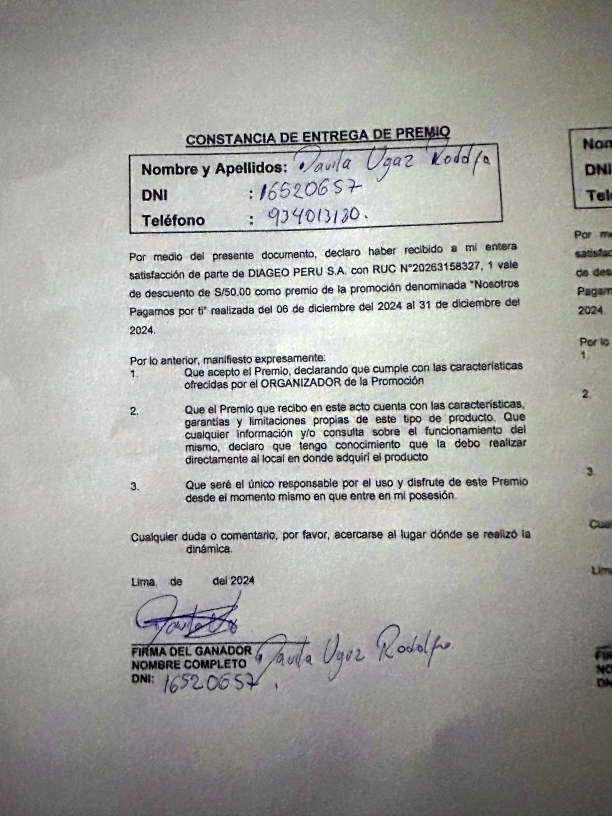 CONSTANCIA DE ENTREGA DE PREMIO
Nombre y Apellidos: Davila Ugaz Rodolfo
DNI : 16520657
Teléfono : 934013130.
Por medio del presente documento, declaro haber recibido a mi entera
satisfacción de parte de DIAGEO PERU S.A. con RUC N°20263158327, 1 vale
de descuento de S/50.00 como premio de la promoción denominada "Nosotros
Pagamos por ti" realizada del 06 de diciembre del 2024 al 31 de diciembre del
2024.
Por lo anterior, manifiesto expresamente:
1. Que acepto el Premio, declarando que cumple con las características
ofrecidas por el ORGANIZADOR de la Promoción
2. Que el Premio que recibo en este acto cuenta con las características,
garantías y limitaciones propias de este tipo de producto. Que
cualquier información y/o consulta sobre el funcionamiento del
mismo, declaro que tengo conocimiento que la debo realizar
directamente al local en donde adquirí el producto
3. Que seré el único responsable por el uso y disfrute de este Premio
desde el momento mismo en que entre en mi posesión.
Cualquier duda o comentario, por favor, acercarse al lugar dónde se realizó la
dinámica.
Lima, de del 2024
FIRMA DEL GANADOR
NOMBRE COMPLETO Davila Ugaz Rodolfo
DNI: 16520657.
Nom
DNI
Tel
Por me
satisfac
de des
Pagam
2024.
Por lo
1.
2.
3.
Cua
Lim
FIR
NO
DN